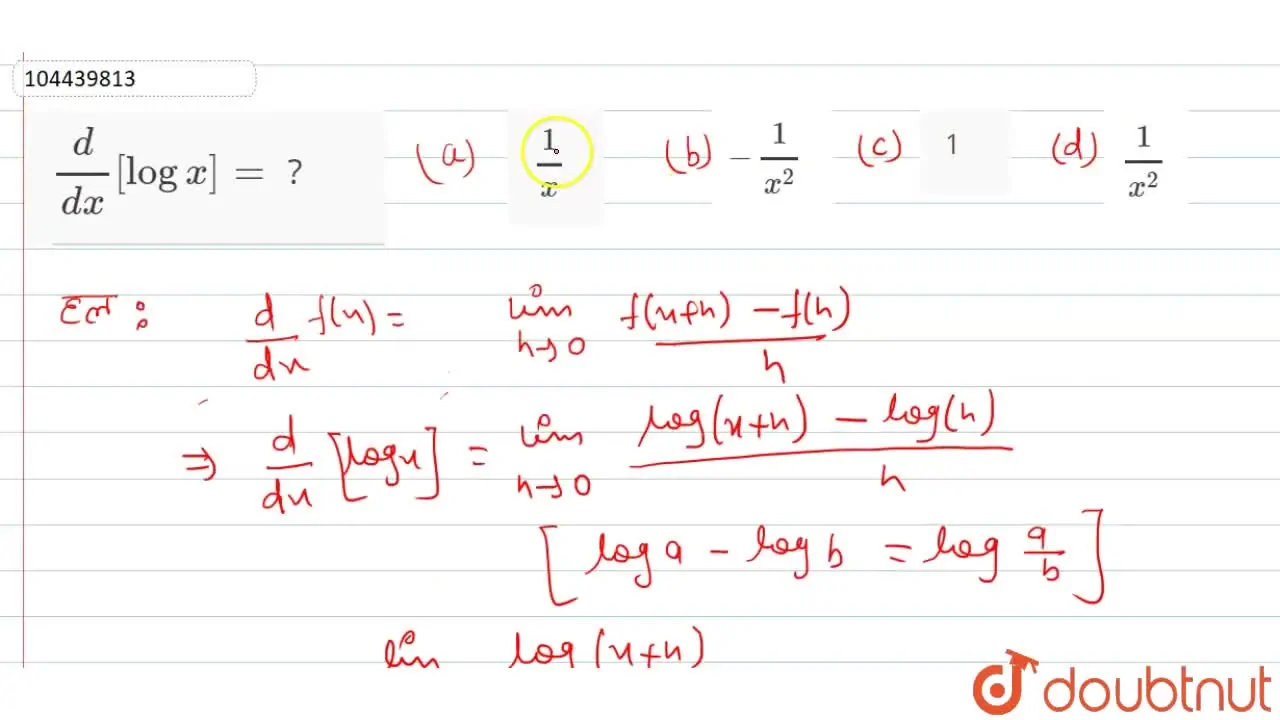 104439813
d/dx [log x] = ? (a) 1/x (b) −1/x² (c) 1 (d) 1/x²
हल : d/dx f(x) = lim h→0 f(x+h) − f(h) / h
⇒ d/dx [log x] = lim h→0 log(x+h) − log(h) / h
[log a − log b = log a/b]
lim log (x+h)
doubtnut